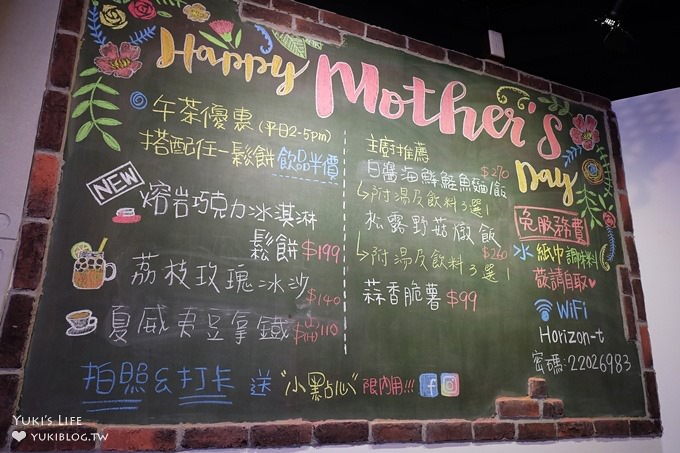 Happy Mother's Day
午茶優惠(平日2-5pm)
搭配任一鬆餅飲品半價
NEW
熔岩巧克力冰淇淋
鬆餅$199
荔枝玫瑰冰沙$140
夏威夷豆拿鐵$110
主廚推薦
白醬海鮮鮭魚麵/飯$270
↳附湯及飲料3選1
松露野菇燉飯$260
↳附湯及飲料3選1
蒜香脆薯$99
免服務費
水 紙巾 調味料
敬請自取♥
WiFi
Horizon-t
密碼:22026983
拍照&打卡 送"小點心"限內用!!!
YUKI'S LIFE
YUKIBLOG.TW